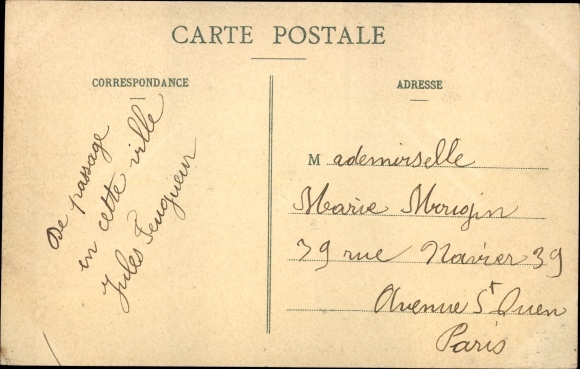 CARTE POSTALE
CORRESPONDANCE
De passage
en cette ville
Jules Feugueur
ADRESSE
Mademoiselle
Marie Mougin
39 rue Navier 39
Avenue St Ouen
Paris